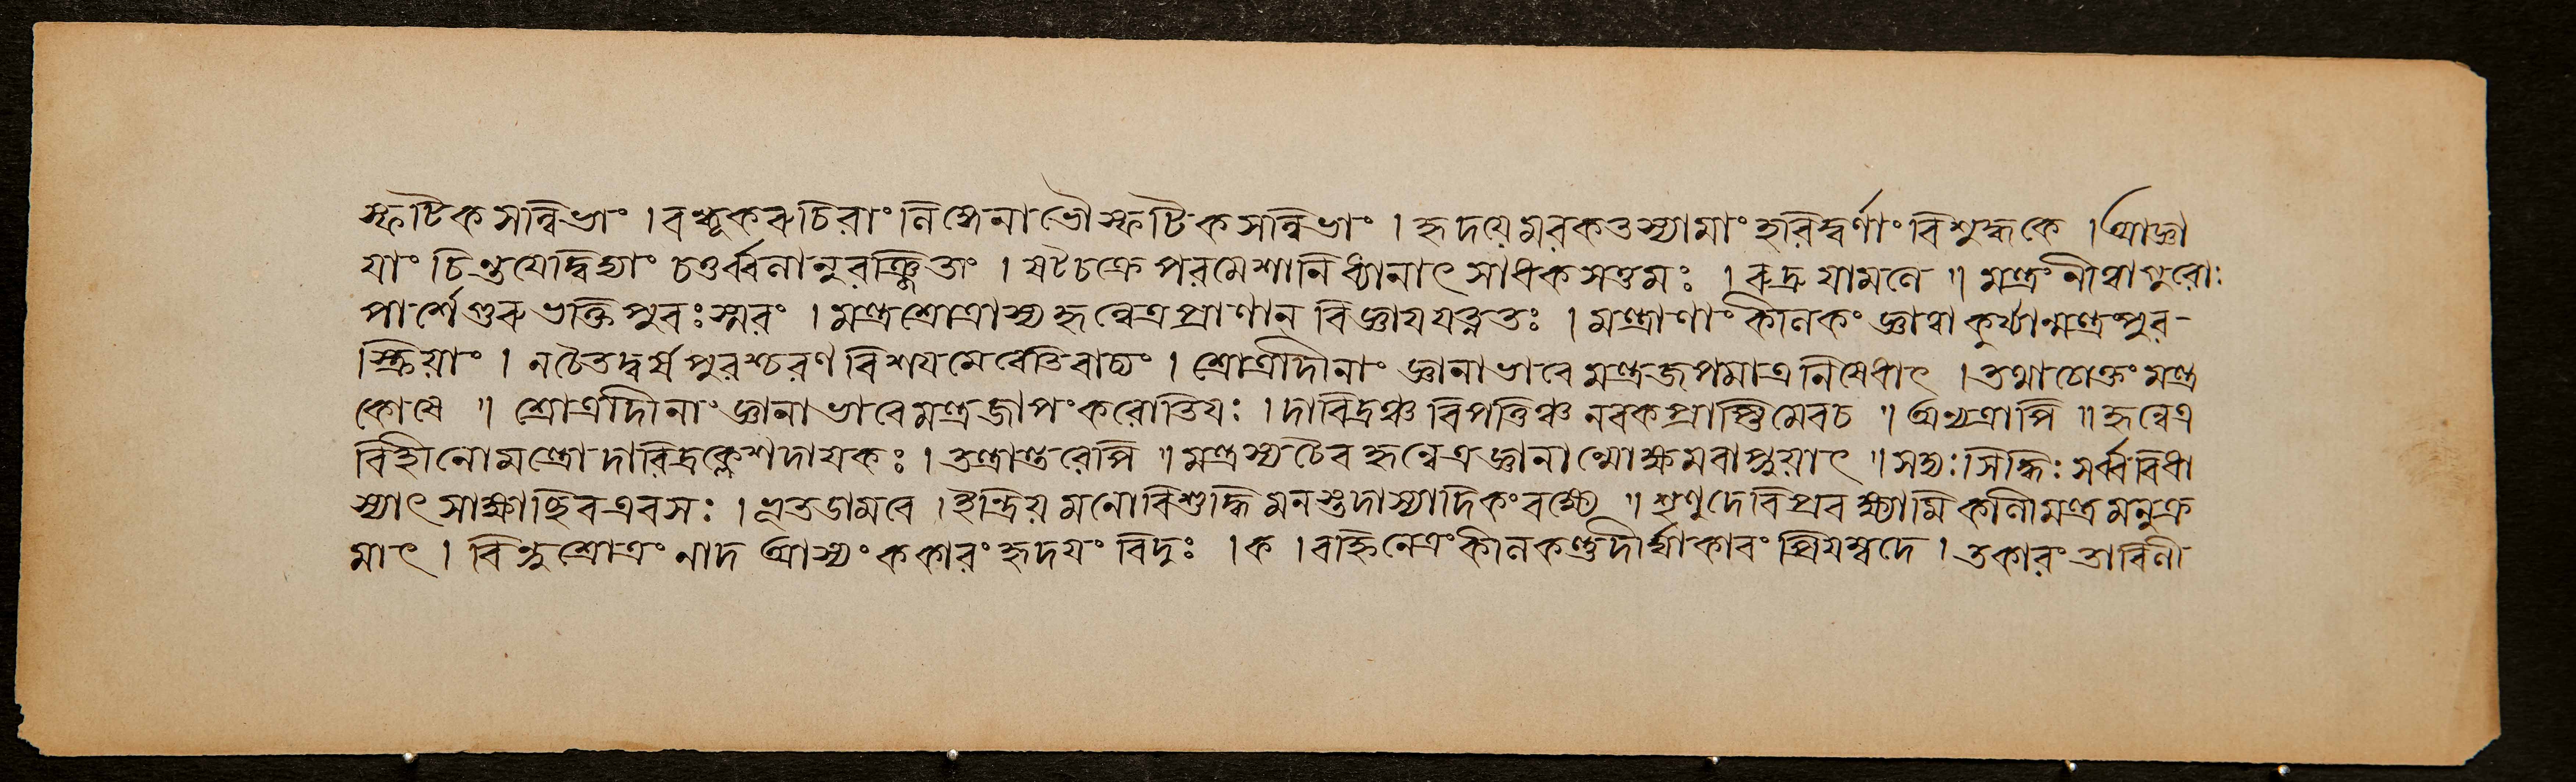 স্ফটিকসন্নিভাং । বন্ধূকরুচিরাং নিম্নে নাভৌ স্ফটিকসন্নিভাং । হৃদয়ে মরকতশ্যামাং হরিদ্বর্ণাং বিশুদ্ধকে । আজ্ঞা
যাং চিন্তয়েদ্বিদ্যাং চতুর্ব্বর্ণানুরঞ্জিতাং । ষটচক্রে পরমেশানি ধ্যানাৎ সাধকসত্তমঃ । রুদ্রযামলে ॥ মন্ত্রং নীত্বা গুরোঃ
পার্শ্বে গুরুভক্তিপুরঃসরং । মন্ত্রশ্রোত্রাস্যহৃন্নেত্রপ্রাণান বিজ্ঞায যত্নতঃ । মন্ত্রাণাং কীলকং জ্ঞাত্বা কুর্য্যান্মন্ত্রংপুর-
স্ক্রিয়াং । নচৈতদ্বর্ষ পুরশ্চরণ বিশযমেবেতি বাচ্যং । শ্রোত্রাদীনাং জ্ঞানাভাবে মন্ত্রজপমাত্র নিষেধাৎ । তথাচোক্তং মন্ত্র
কোষে ॥ শ্রোত্রাদীনাং জ্ঞানাভাবে মন্ত্রজাপং করোতি যঃ । দারিদ্রঞ্চ বিপত্তিঞ্চ নরকপ্রাপ্তিমেবচ ॥ অন্যত্রাপি ॥ হৃন্নেত্র
বিহীনো মন্ত্রো দারিদ্রক্লেশদাযকঃ । তন্ত্রান্তরেপি ॥ মন্ত্রস্যচৈব হৃন্নেত্র জ্ঞানান্মোক্ষমবাপ্নুয়াৎ ॥ সত্যঃ সিদ্ধিঃ সর্ব্ববিধা
স্যাৎ সাক্ষাচ্ছিব এব সঃ । ভূতডামরে । ইন্দ্রিয় মনোবিশুদ্ধি মনস্তদাস্যাদিকং বক্ষ্যে ॥ শৃণু দেবি প্রবক্ষ্যামি কালীমন্ত্র মনুক্র
মাৎ । বিন্দুশ্রোত্রং নাদ আস্যং ককারং হৃদযং বিদুঃ । ক । বহ্নিনেত্রং কীলকন্তু দীর্ঘাকারং প্রিযম্বদে । তকারং তারিণী